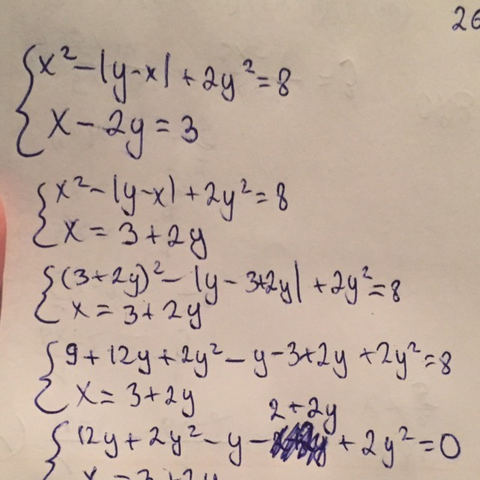 26
x² - |y-x| + 2y² = 8
x - 2y = 3
x² - |y-x| + 2y² = 8
x = 3 + 2y
(3+2y)² - |y - 3+2y| + 2y² = 8
x = 3 + 2y
9 + 12y + 2y² - y - 3 + 2y + 2y² = 8
x = 3 + 2y
2 + 2y
12y + 2y² - y - + 2y² = 0
x = 3 + 2y